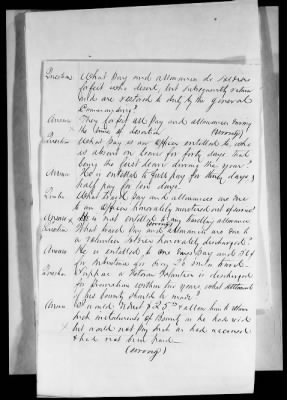 Question What Pay and allowances do soldiers
forfeit who desert, but subsequently return
and are restored to duty by the general
Commanding?
Answer They forfeit all Pay and allowances during
the time of desertion (wrong)
Question What Pay is an Officer entitled to who
is absent on leave for forty days that
being the first leave during the year?
Answer He is entitled to full pay for thirty days,
half pay for ten days.
Question What travel Pay and allowances are due
an Officer honorably mustered out of service?
Answer He is not entitled to any travelling allowance
(wrong)
Question What travel Pay and allowance are due to
a Volunteer Officer honorably discharged?
Answer He is entitled to one days Pay and
in Subsistence for every 20 miles travel
Question a Veteran Volunteer is discharged
for promotion within his year what
of his bounty should be made?
Answer I would deduct $25 him to
such instalments of Bounty as he had
but would not pay such as had accrued
& had not been paid
(wrong)